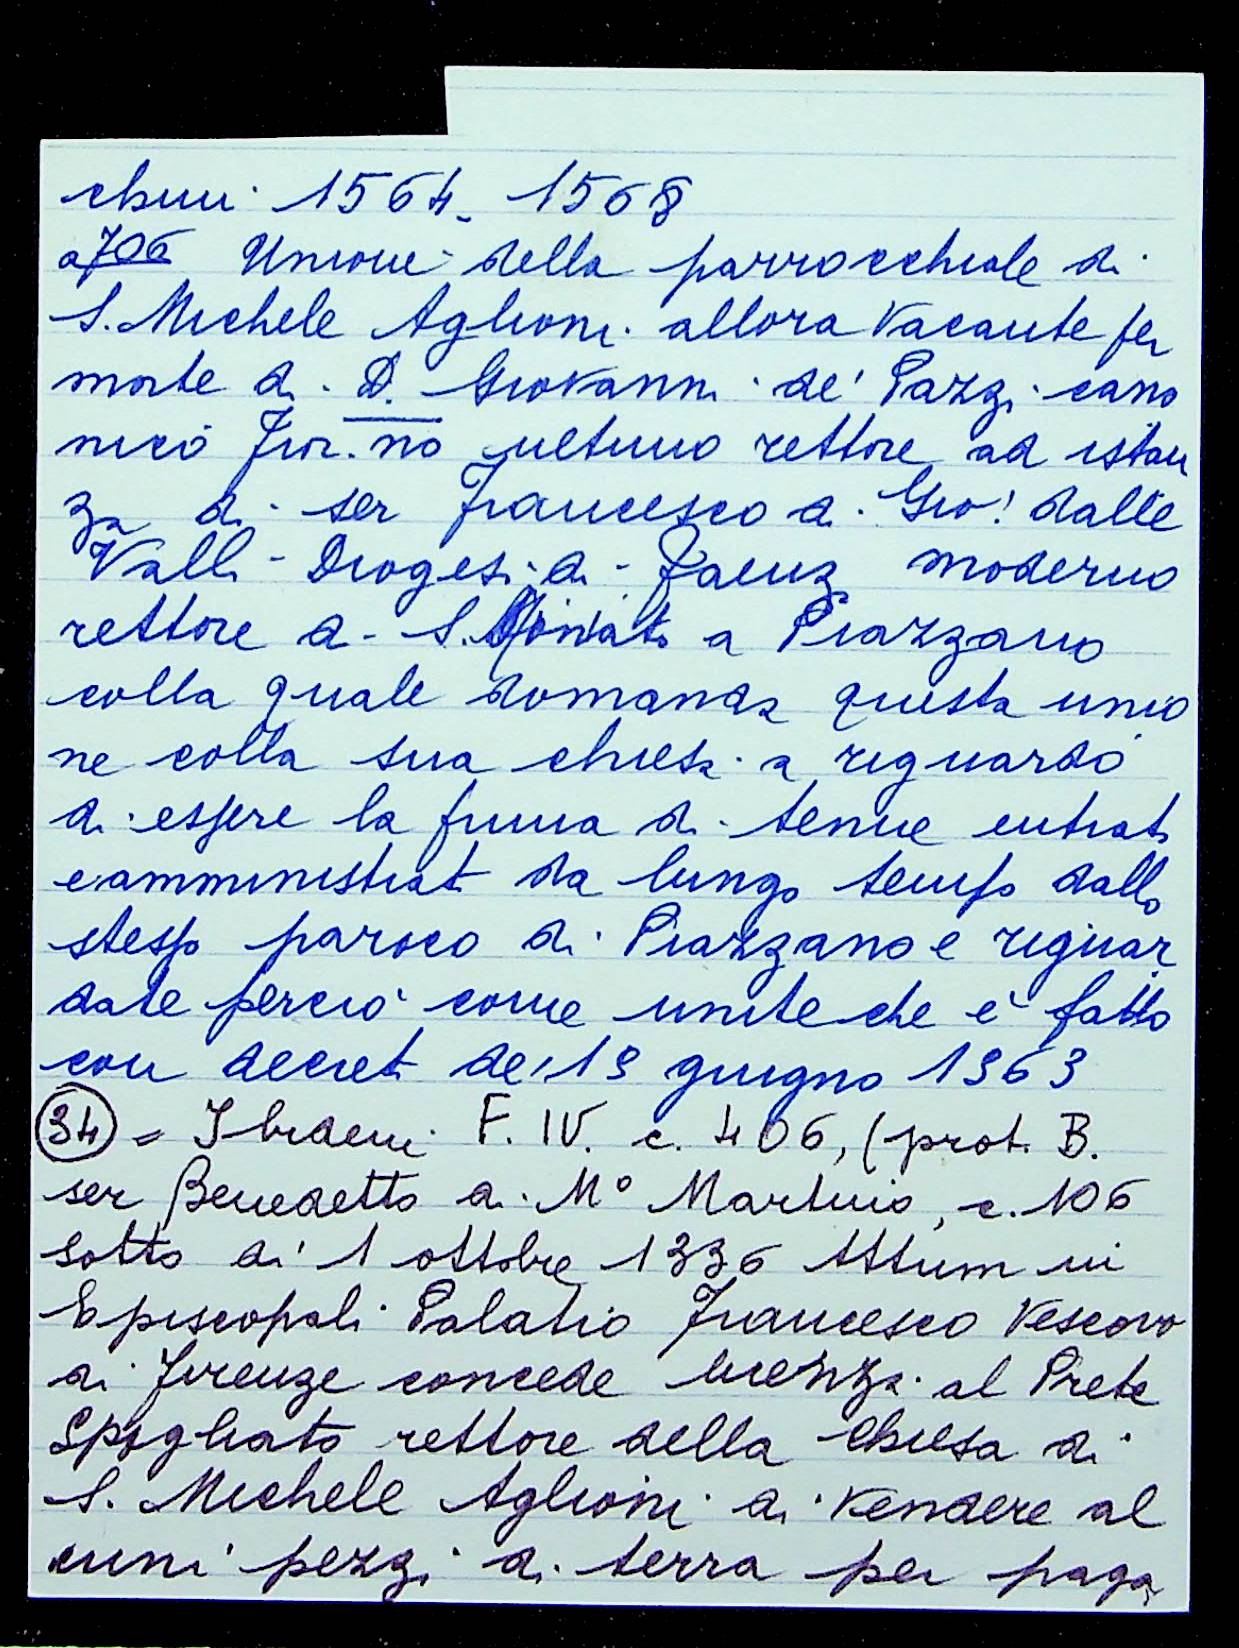 chivi 1564-1568
a 706 Unione della parrocchiale di
S. Michele Aglioni allora vacante per
morte di D. Giovanni de' Pazzi cano
nico Fior.no ultimo rettore ad istan
za di ser Francesco di Gio: dalle
Valli - Diogesi di Faenz moderno
rettore di S. Miniato a Piazzano
colla quale domanda questa unio
ne colla sua chiesa a riguardo
di essere la prima di tenue entrata
e amministrata da lungo tempo dallo
stesso paroco di Piazzano e riguar
date perciò come unite che è fatto
con decreto de' 19 giugno 1563
(34) = Ibidem F. IV. c. 406, (prot. B.
ser Benedetto di M° Martino, c. 106
sotto di' 1 ottobre 1336 Attum in
Episcopali Palatio Francesco Vescovo
di Firenze concede licenza al Prete
Spigliato rettore della Chiesa di
S. Michele Aglioni di vendere al
cuni pezzi di terra per paga